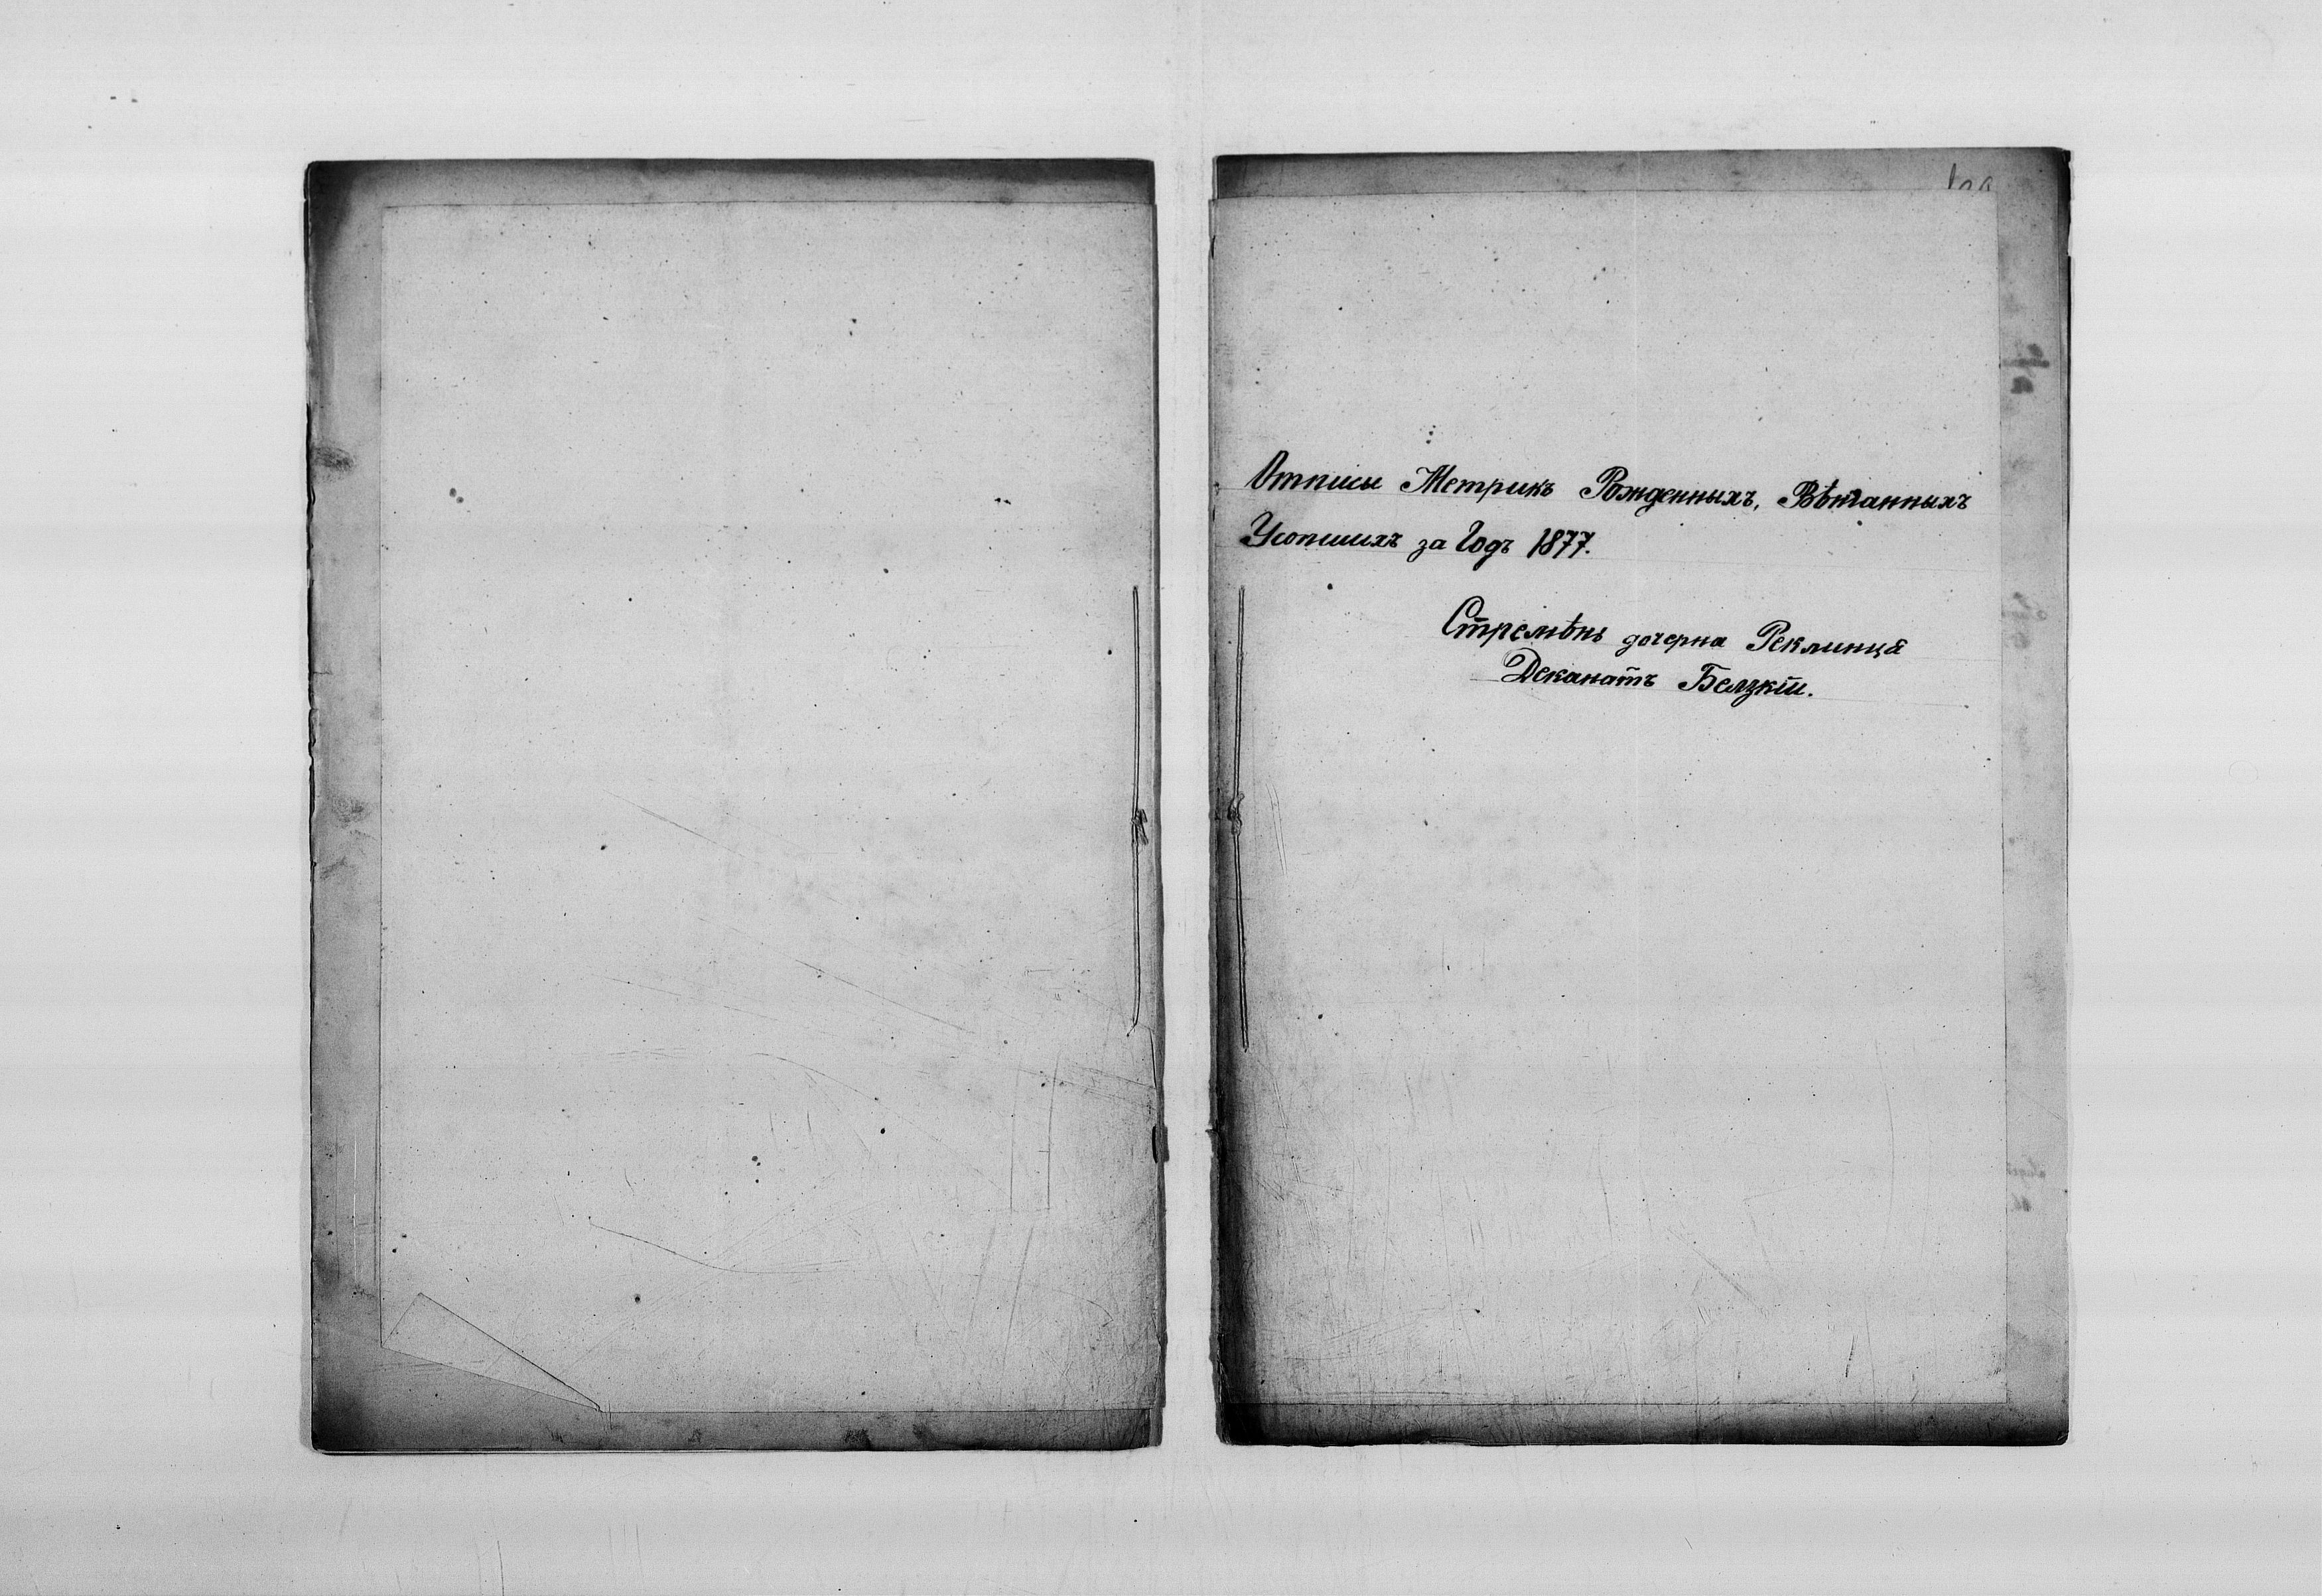 Отписы Метрикъ Рожденныхъ, Вѣнчанныхъ
Усопшихъ за Годъ 1877.
Стремѣнь дочерна Реклинца
Деканатъ Белзкій.